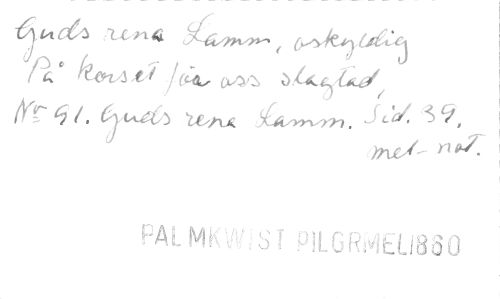 Guds rena Lamm, oskyldig
På korset för oss slagtad,
Nr 91. Guds rena Lamm. Sid. 39.
mel-not.
PALMKWIST PILGRMEL1860